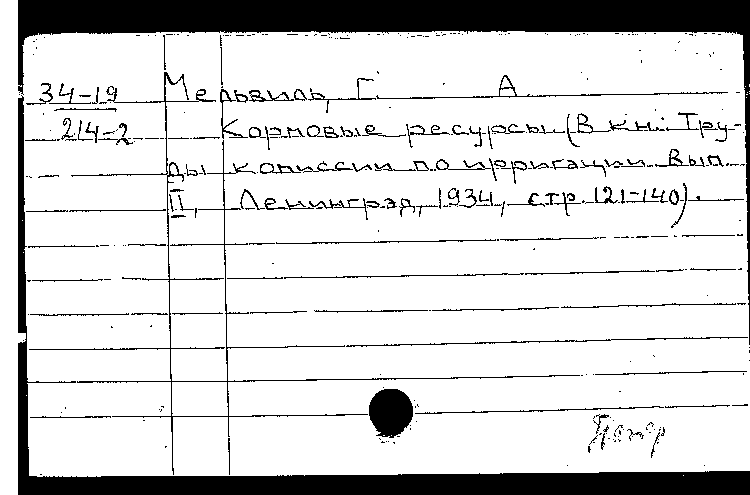 34-19 Мельвиль, Г. А.
214-2 Кормовые ресурсы. (В кн.: Тру-
ды комиссии по ирригации. Вып.
II, Ленинград, 1934, стр. 121-140).